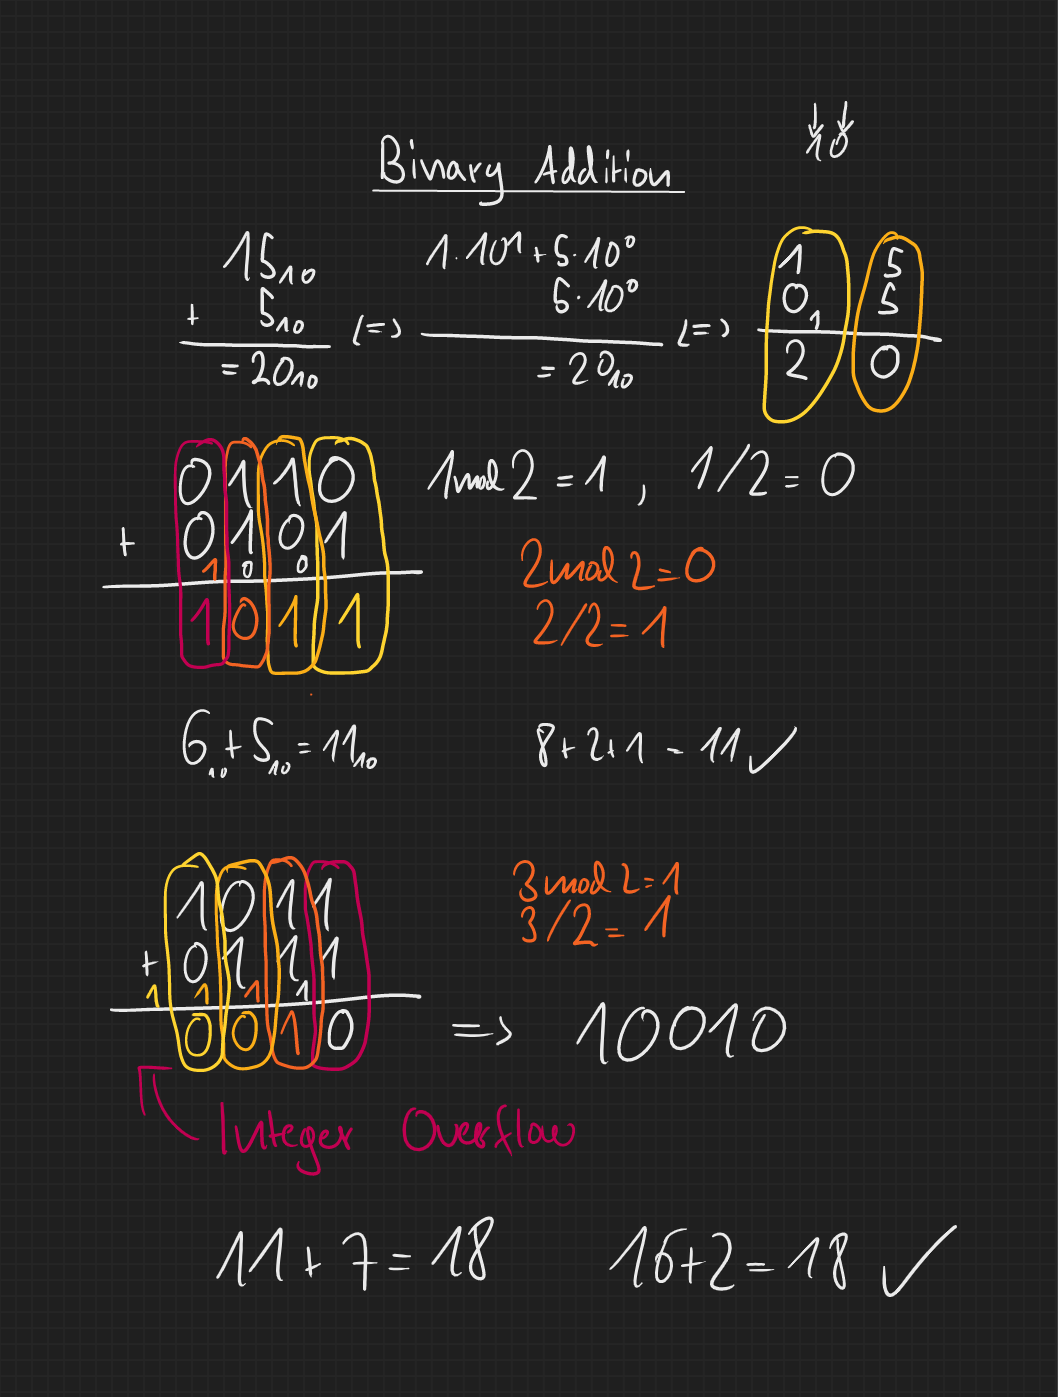 10
Binary Addition
15₁₀
+ 5₁₀
= 20₁₀
<=>
1·10¹ + 5·10⁰
5·10⁰
= 20₁₀
<=>
1 5
0₁ 5
2 0
0110
+ 0101
1 0 0
1011
1 mod 2 = 1 , 1/2 = 0
2 mod 2 = 0
2/2 = 1
6₁₀ + 5₁₀ = 11₁₀
8+2+1 = 11 ✓
1011
+ 0111
1 1 1 1
0010
=> 10010
3 mod 2 = 1
3/2 = 1
Integer Overflow
11 + 7 = 18
16+2 = 18 ✓